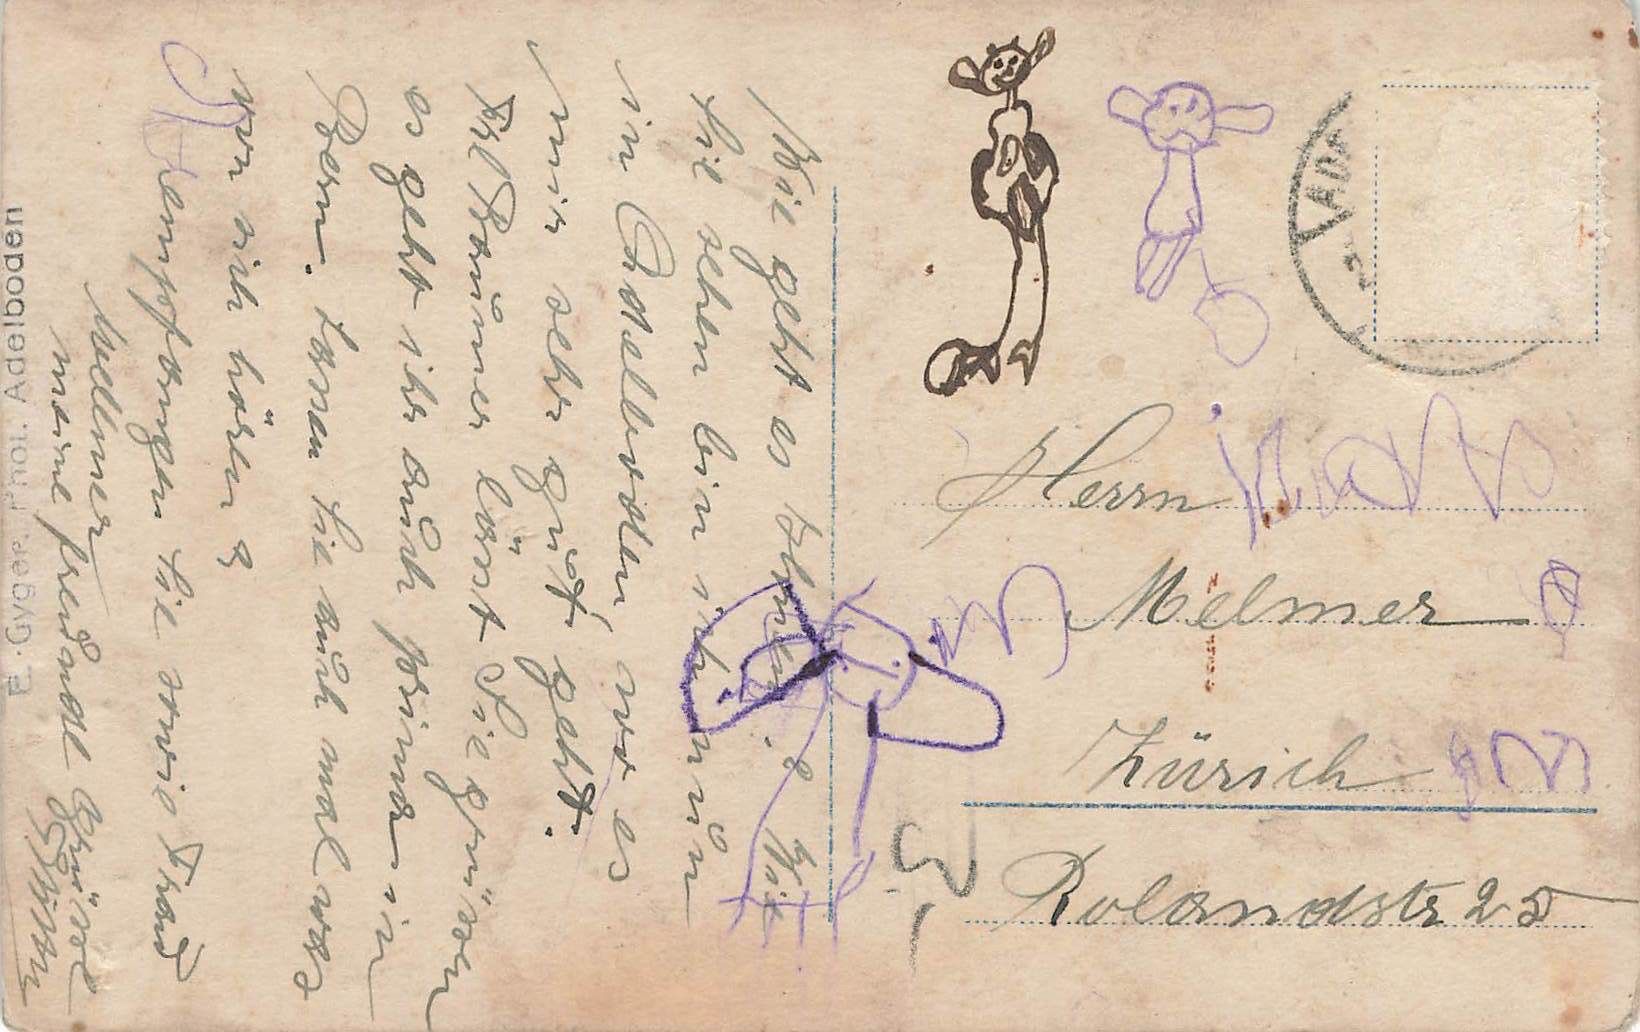 Wie geht es Ihnen? Wie
Sie sehen bin ich nun
in Adelboden, wo es
mir sehr gut geht.
Frl Baumer lässt Sie grüssen
es geht ihr auch prima in
Bern. Lassen Sie auch mal was
von sich hören &
empfangen Sie sowie Frau
Muellmer
meine freundl Grüsse
E. Gyger, Phot. Adelboden
Herrn
Melmer
Zürich
Rolandstr 25
ADE